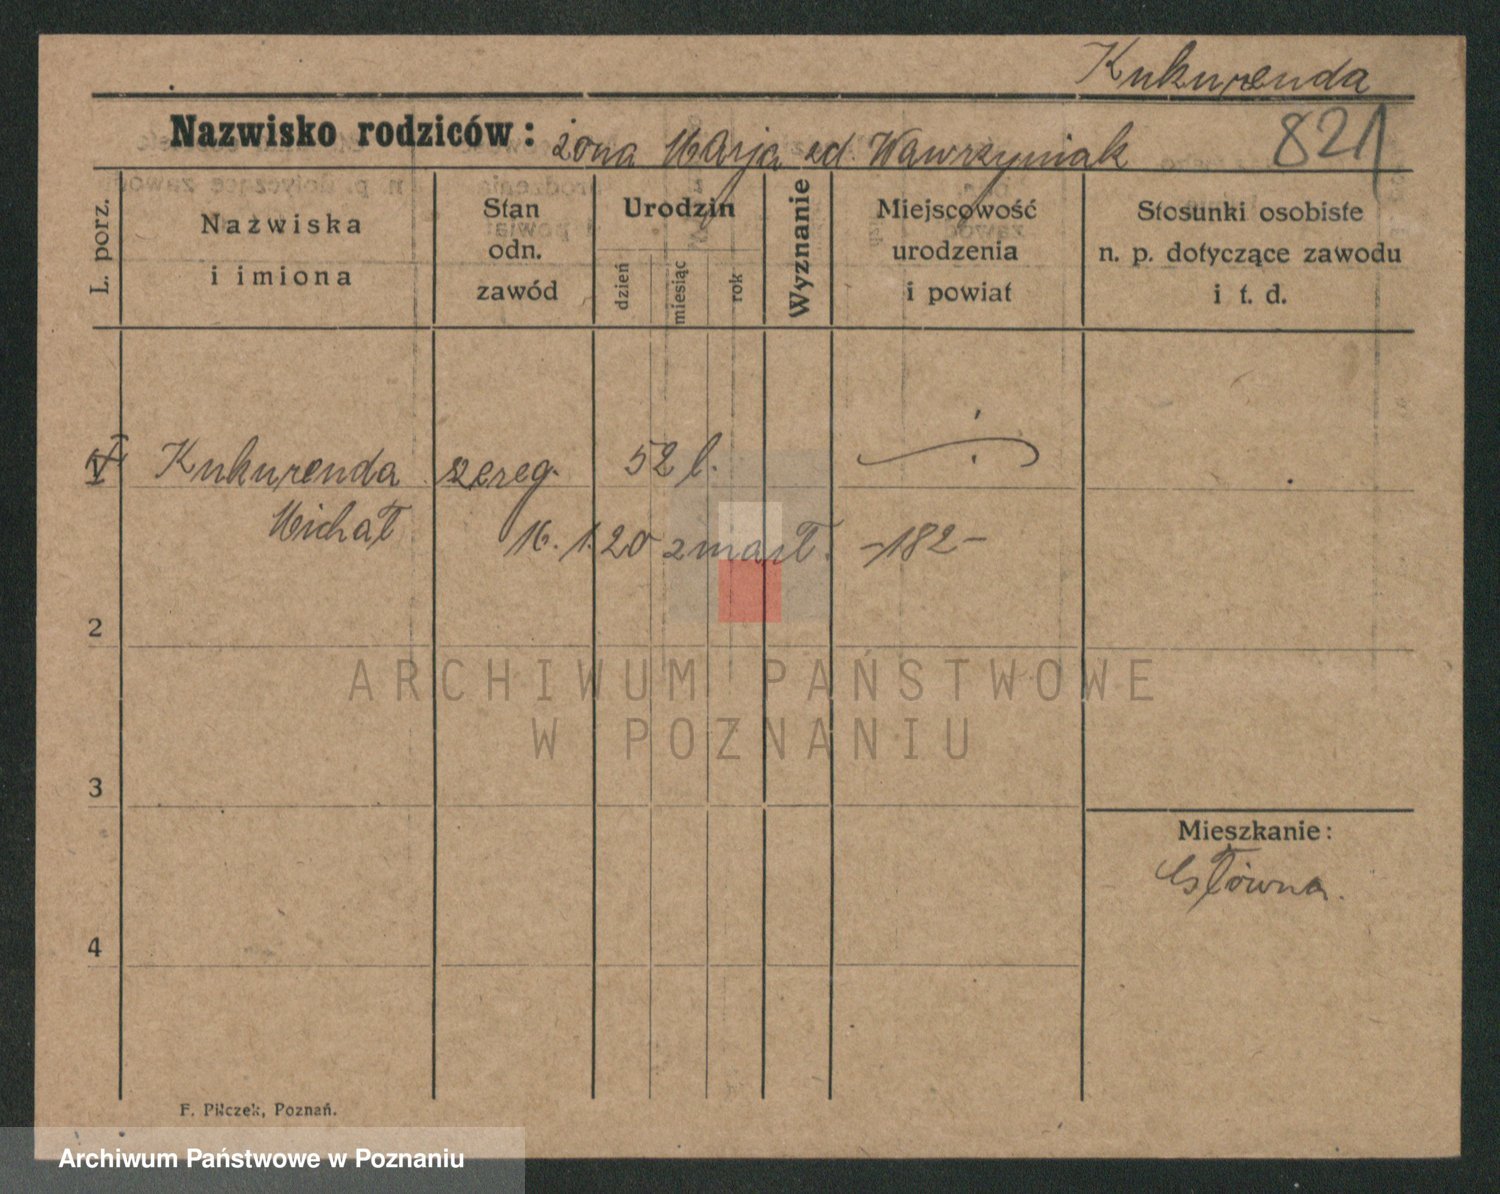 Kukurenda
Nazwisko rodziców: żona Marja zd. Wawrzyniak
821
L. porz.
Nazwiska
i imiona
Stan
odn.
zawód
Urodzin
dzień
miesiąc
rok
Wyznanie
Miejscowość
urodzenia
i powiat
Stosunki osobiste
n. p. dotyczące zawodu
i t. d.
1 Kukurenda szereg. 52 l.
Michał 16.1.20 zmarł. -182-
2
3
4
Mieszkanie:
Główna.
F. Pilczek, Poznań.
ARCHIWUM PAŃSTWOWE
W POZNANIU
Archiwum Państwowe w Poznaniu